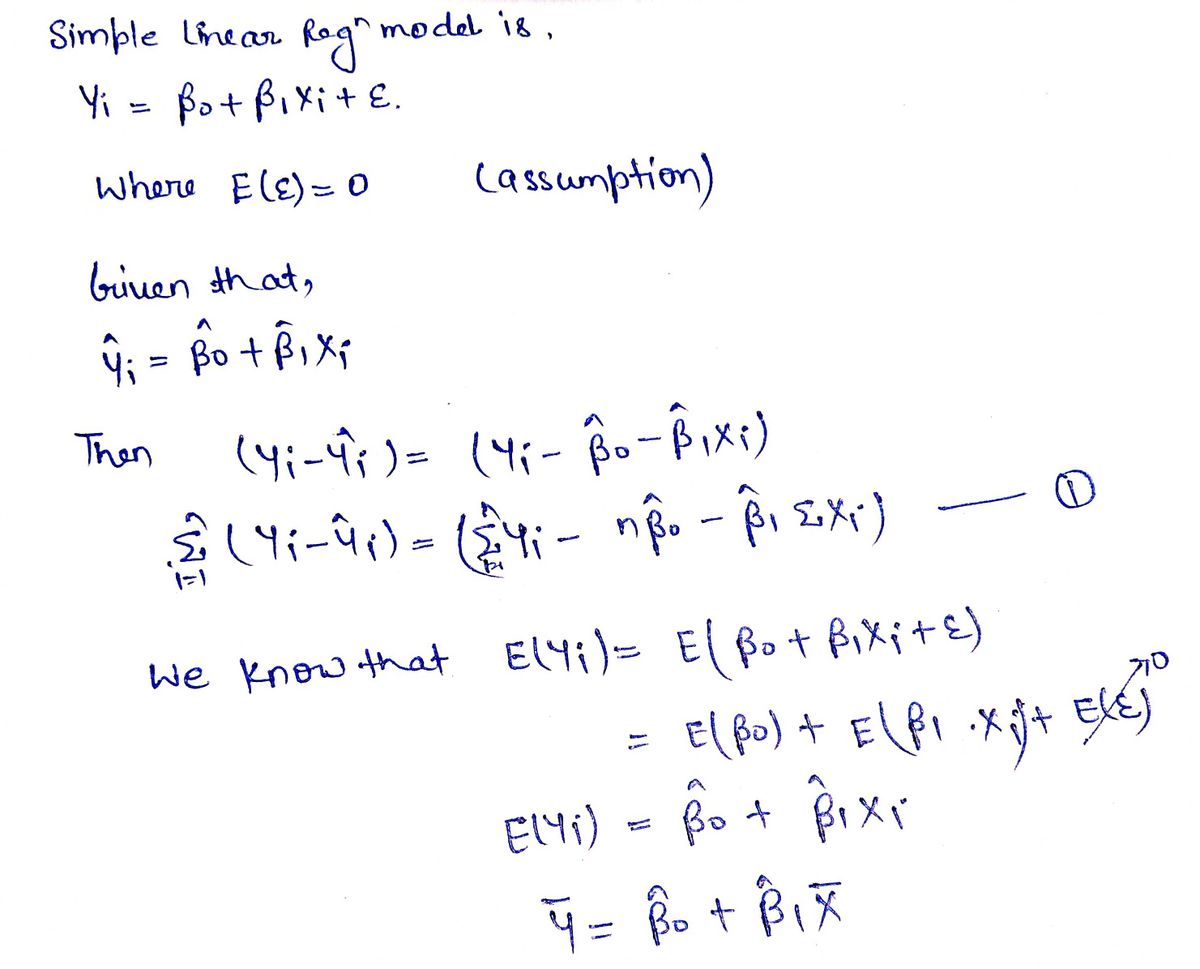 Simple Linear Regⁿ model is,
Yi = β₀ + β₁Xi + ε.
Where E(ε) = 0 (assumption)
Given that,
ŷi = β̂₀ + β̂₁Xi
Then (yi - ŷi) = (yi - β̂₀ - β̂₁xi)
n∑i=1 (yi - ŷi) = (n∑i=1 yi - nβ̂₀ - β̂₁ ∑xi) — ①
We know that E(yi) = E(β₀ + β₁Xi + ε)
= E(β₀) + E(β₁ .xi) + E(ε)↗0
E(yi) = β̂₀ + β̂₁xi
ȳ = β̂₀ + β̂₁x̄